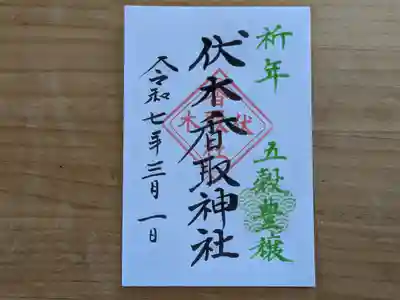 祈年 五穀豊穣
伏木香取神社
令和七年三月一日